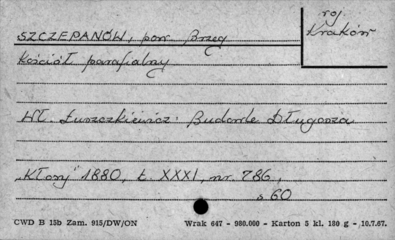 roj
Kraków
SZCZEPANÓW, pow. Brzeg
Kościół parafialny
Wł. Łuszczkiewicz: Budowle Długosza
"Kłosy" 1880, t. XXXI, nr. 786,
s 60
CWD B 15b Zam. 915/DW/ON Wrak 647 - 980.000 - Karton 5 kl. 180 g - 10.7.67.